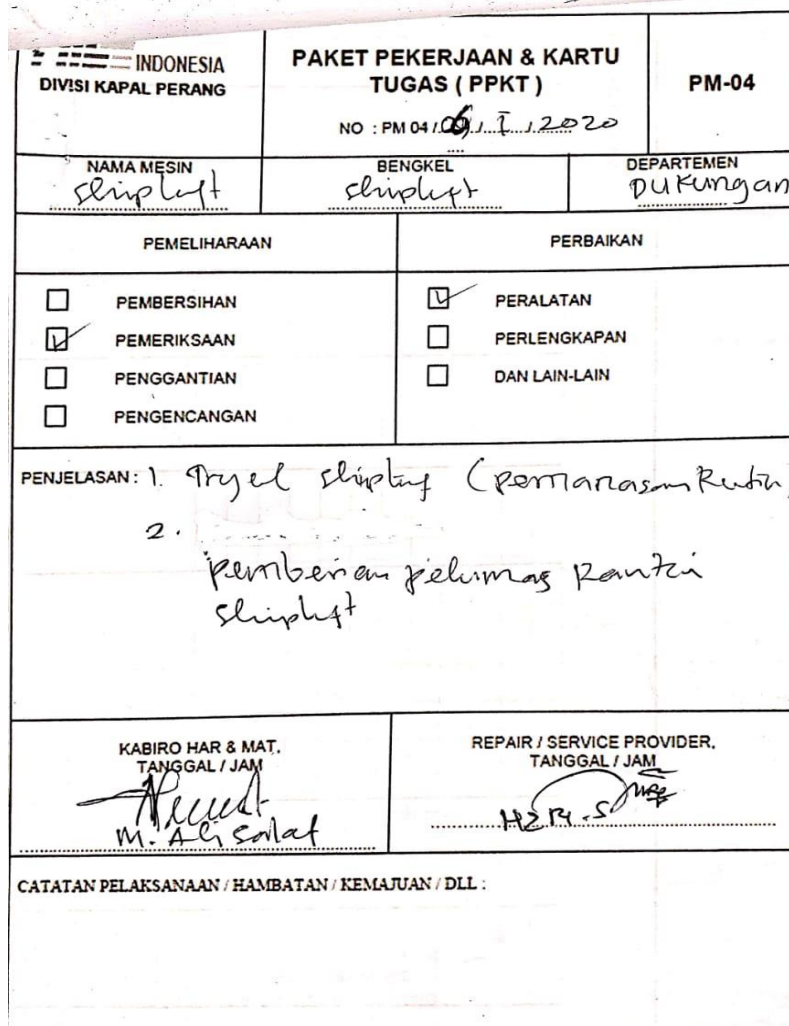 INDONESIA
DIVISI KAPAL PERANG
PAKET PEKERJAAN & KARTU
TUGAS ( PPKT )
NO : PM 04 / 06 / I / 2020
PM-04
NAMA MESIN
Shiplift
BENGKEL
Shiplift
DEPARTEMEN
Dukungan
PEMELIHARAAN
PERBAIKAN
PEMBERSIHAN
PEMERIKSAAN
PENGGANTIAN
PENGENCANGAN
PERALATAN
PERLENGKAPAN
DAN LAIN-LAIN
PENJELASAN : 1. Shiplift (Pemanasan Rutin
2.
Pemberian pelumas Rantai
Shiplift
KABIRO HAR & MAT.
TANGGAL / JAM
M. Ali
REPAIR / SERVICE PROVIDER.
TANGGAL / JAM
CATATAN PELAKSANAAN / HAMBATAN / KEMAJUAN / DLL :